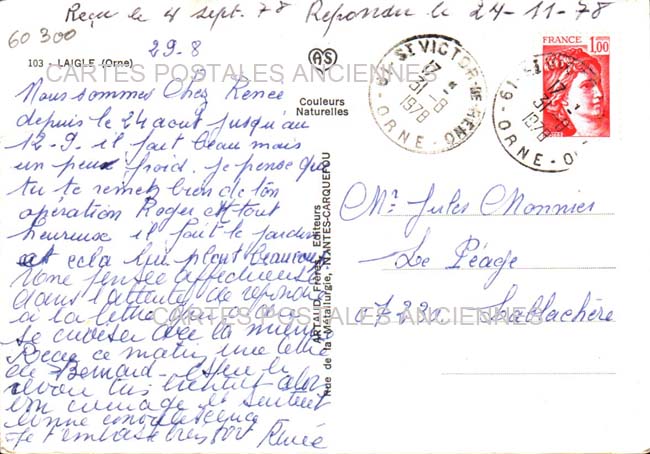 Reçu le 4 sept. 78 Repondu le 24-11-78
60 300
29-8
103 - LAIGLE (Orne)
CARTES POSTALES ANCIENNES
Nous sommes Chez Renée
depuis le 24 aout jusqu'au
12-9. il fait beau mais
un peu froid. je pense que
tu te remets bien de ton
opération Roger est tout
heureux il fait le jardin
et cela lui plait beaucoup
Une pensée affectueuse
dans l'attente de
à la lettre
se croiser avec la mienne
Reçu ce matin une lettre
de Bernard
bon courage et
bonne convalescence
Je t'embrasse bien fort Renée
AS
Couleurs
Naturelles
ARTAUD Frères, Editeurs
Rue de la Métallurgie, - NANTES-CARQUEFOU
61 - ST VICTOR DE RENO
17 H
31 -8
1978
ORNE
FRANCE
1,00
61
17 H
31 -8
1978
ORNE
Mr Jules Monnier
Le Péage
07230 Lablachère
CARTES POSTALES ANCIENNES